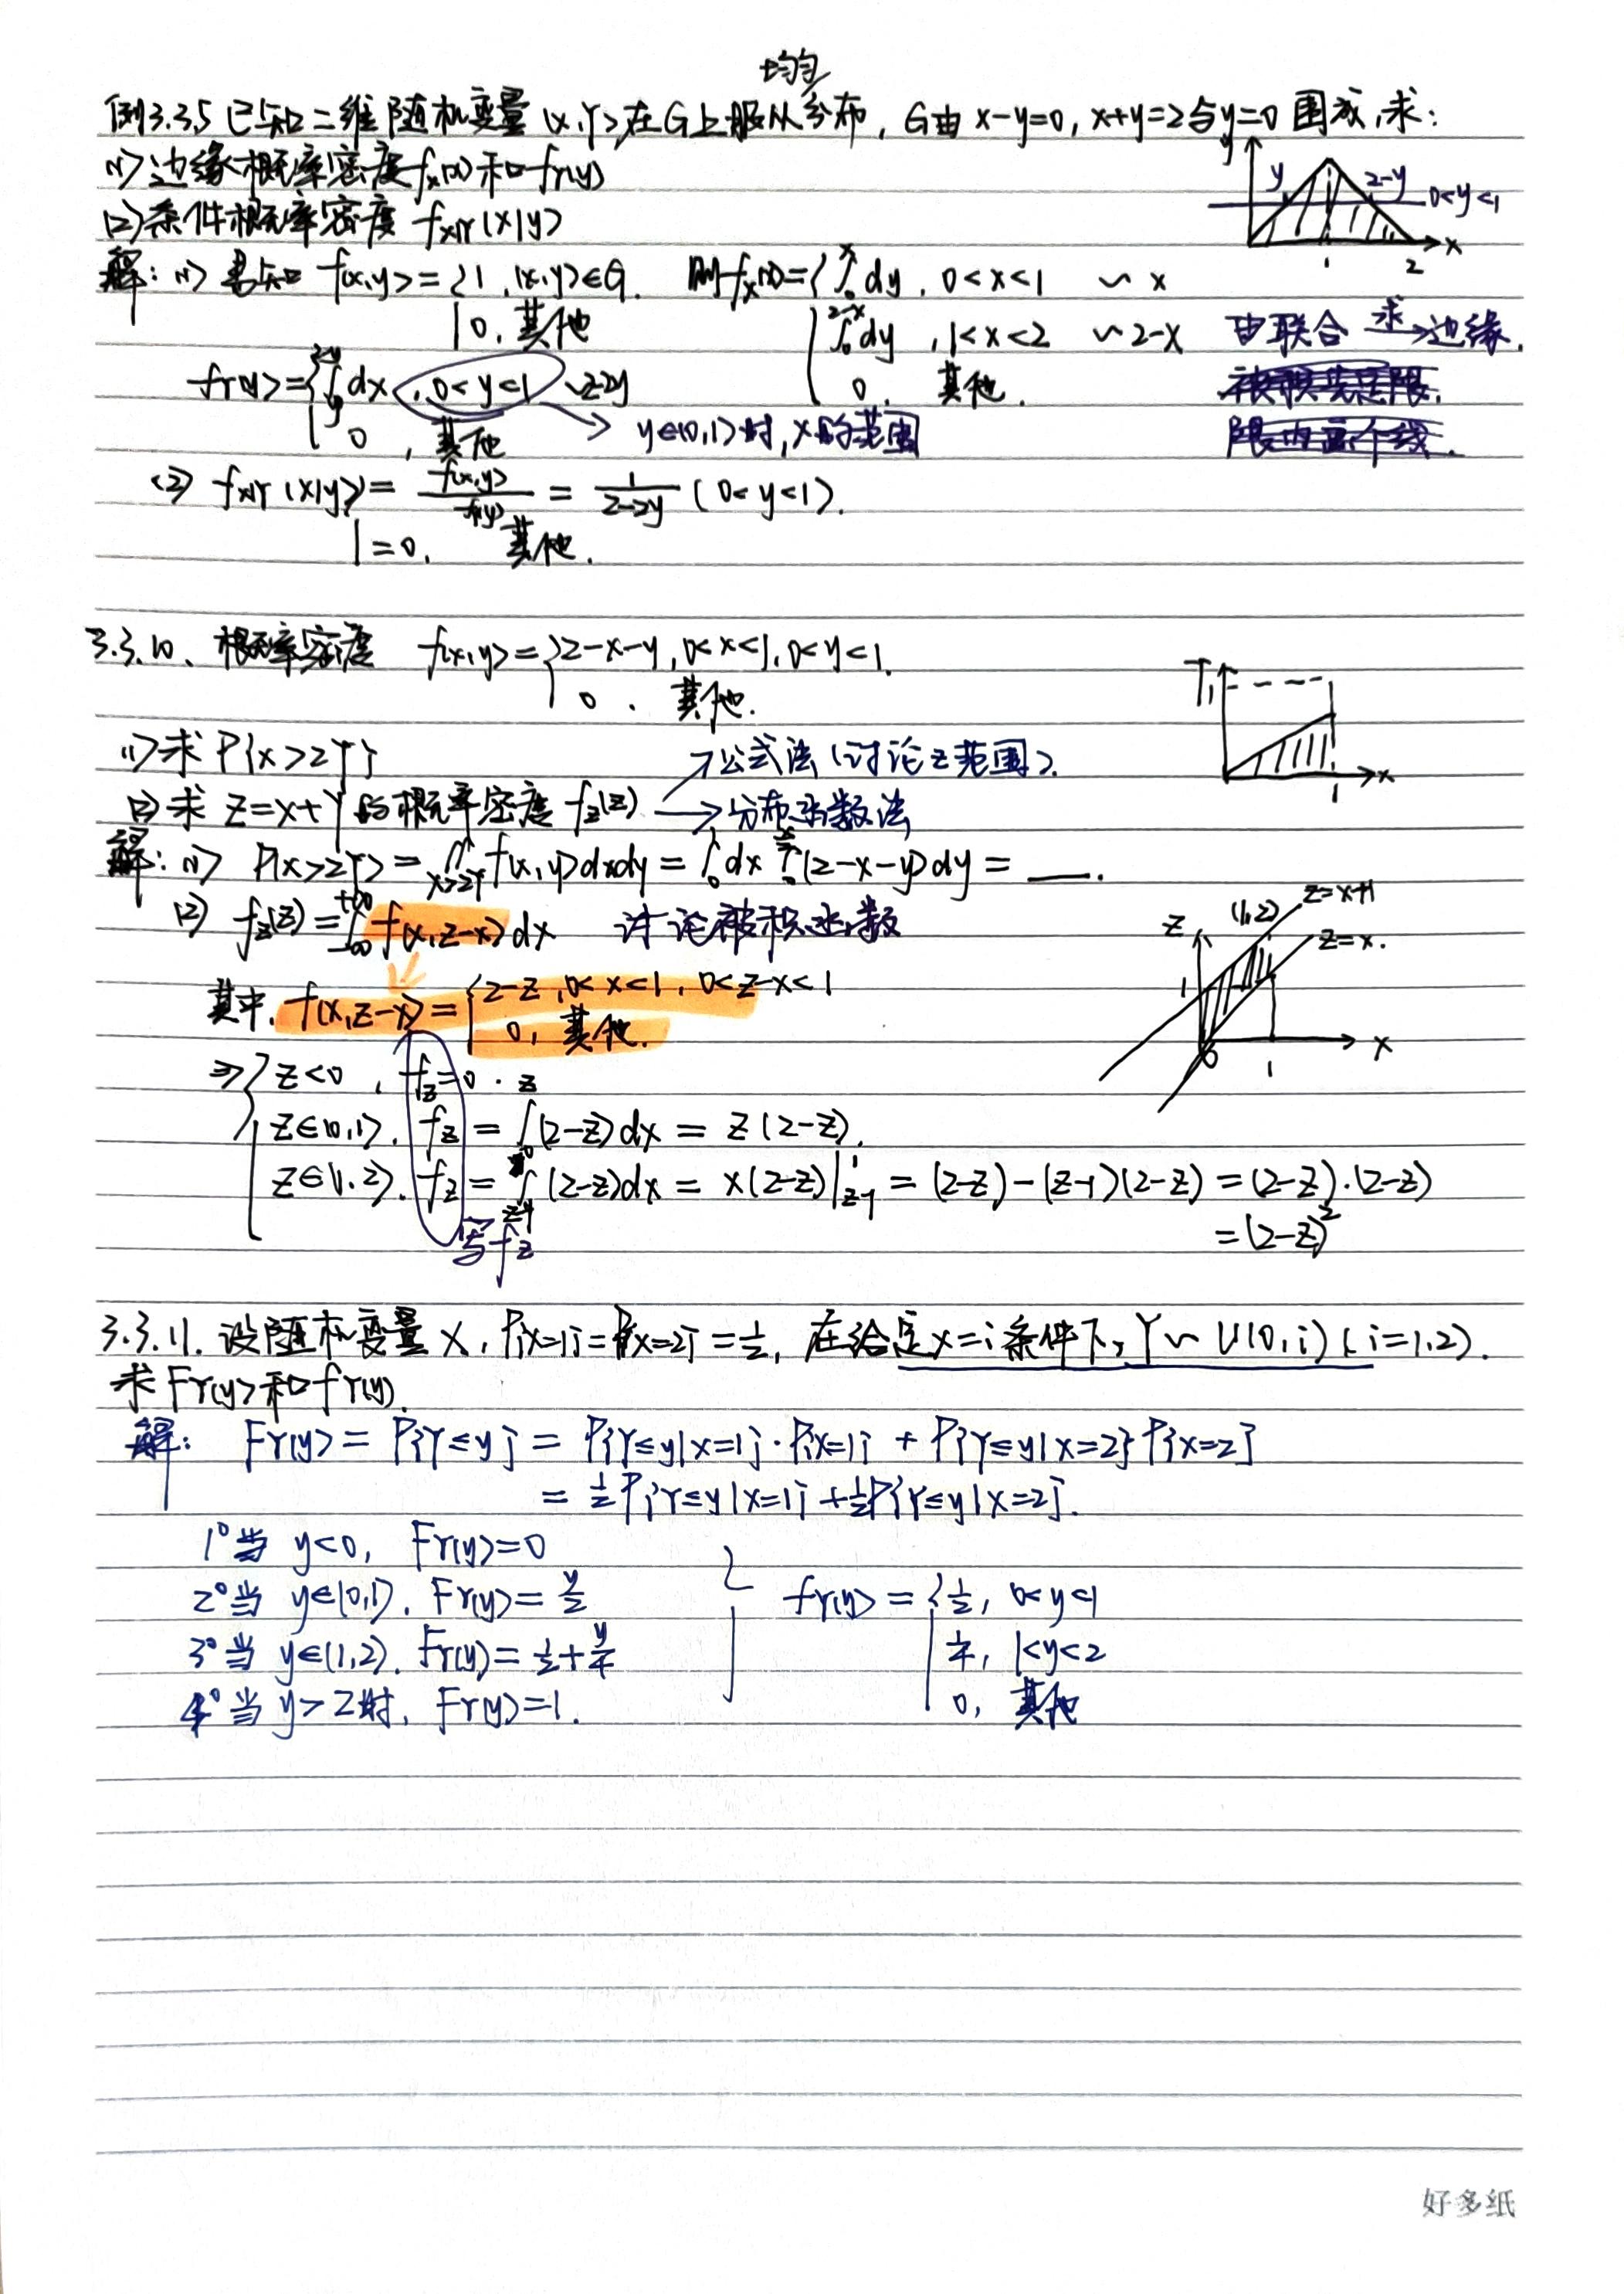 均匀
例3.3.5 已知二维随机变量(X,Y)在G上服从分布，G由x-y=0, x+y=2合y=0围成,求:
(1)边缘概率密度fx(x)和fY(y)
(2)条件概率密度 fX|Y(x|y)
y
y 2-y 0<y<1
1 2 x
解: (1) 易知 f(x,y)={1, (x,y)∈G. 则fX(x)={∫₀ˣdy, 0<x<1 ~ x
0, 其他
∫₀²⁻ˣdy, 1<x<2 ~ 2-x 由联合 求→ 边缘.
fY(y)={∫dx, 0<y<1 ~ 2-2y
0, 其他.
0, 其他 → y∈(0,1)时, x的范围
(2) fX|Y(x|y)= f(x,y)/f(y) = 1/(2-2y) (0<y<1).
=0, 其他.
3.3.10、概率密度 f(x,y)={2-x-y, 0<x<1, 0<y<1.
0. 其他.
1
1 x
(1)求P{X>2Y}
→公式法(讨论z范围).
(2)求 Z=X+Y的概率密度 fz(z) →分布函数法
解: (1) P(X>2Y)=∫∫x>2y f(x,y)dxdy=∫₀¹dx∫₀(2-x-y)dy=___.
(2) fz(z)=∫₋∞⁺∞ f(x,z-x)dx 讨论被积函数
其中. f(x,z-x)={2-z, 0<x<1, 0<z-x<1
0, 其他.
z (1,2) z=x+1
z=x.
1
0 1 x
⇒{z<0, fz=0.
z∈(0,1). fz=∫₀ᶻ(2-z)dx=z(2-z).
z∈(1,2). fz=∫(2-z)dx=x(2-z)|¹z-1=(2-z)-(z-1)(2-z)=(2-z)·(2-z)
=(2-z)²
写fz
3.3.11. 设随机变量X, P{X=1}=P{X=2}=1/2, 在给定X=i条件下, Y~U(0,i)(i=1,2).
求FY(y)和fY(y).
解: FY(y)=P{Y≤y}=P{Y≤y|X=1}·P{X=1}+P{Y≤y|X=2}P{X=2}
=1/2P{Y≤y|X=1}+1/2P{Y≤y|X=2}.
1°当 y<0, FY(y)=0
2°当 y∈(0,1). FY(y)=y/2
3°当 y∈(1,2). FY(y)=1/2+y/4
4°当 y>2时, FY(y)=1.
fY(y)={1/2, 0<y<1
1/4, 1<y<2
0, 其他
好多纸